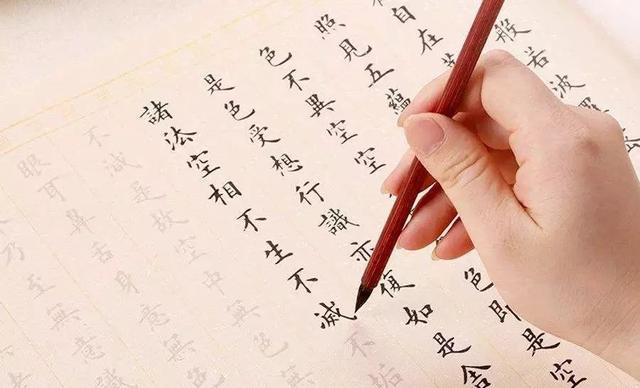 般若波羅
自在
照見五蘊
色不異空空色即是空
是色受想行識亦復如是舍
諸法空相不生不滅不垢
不減是故空中無色
眼耳鼻舌身意
乃至無意識